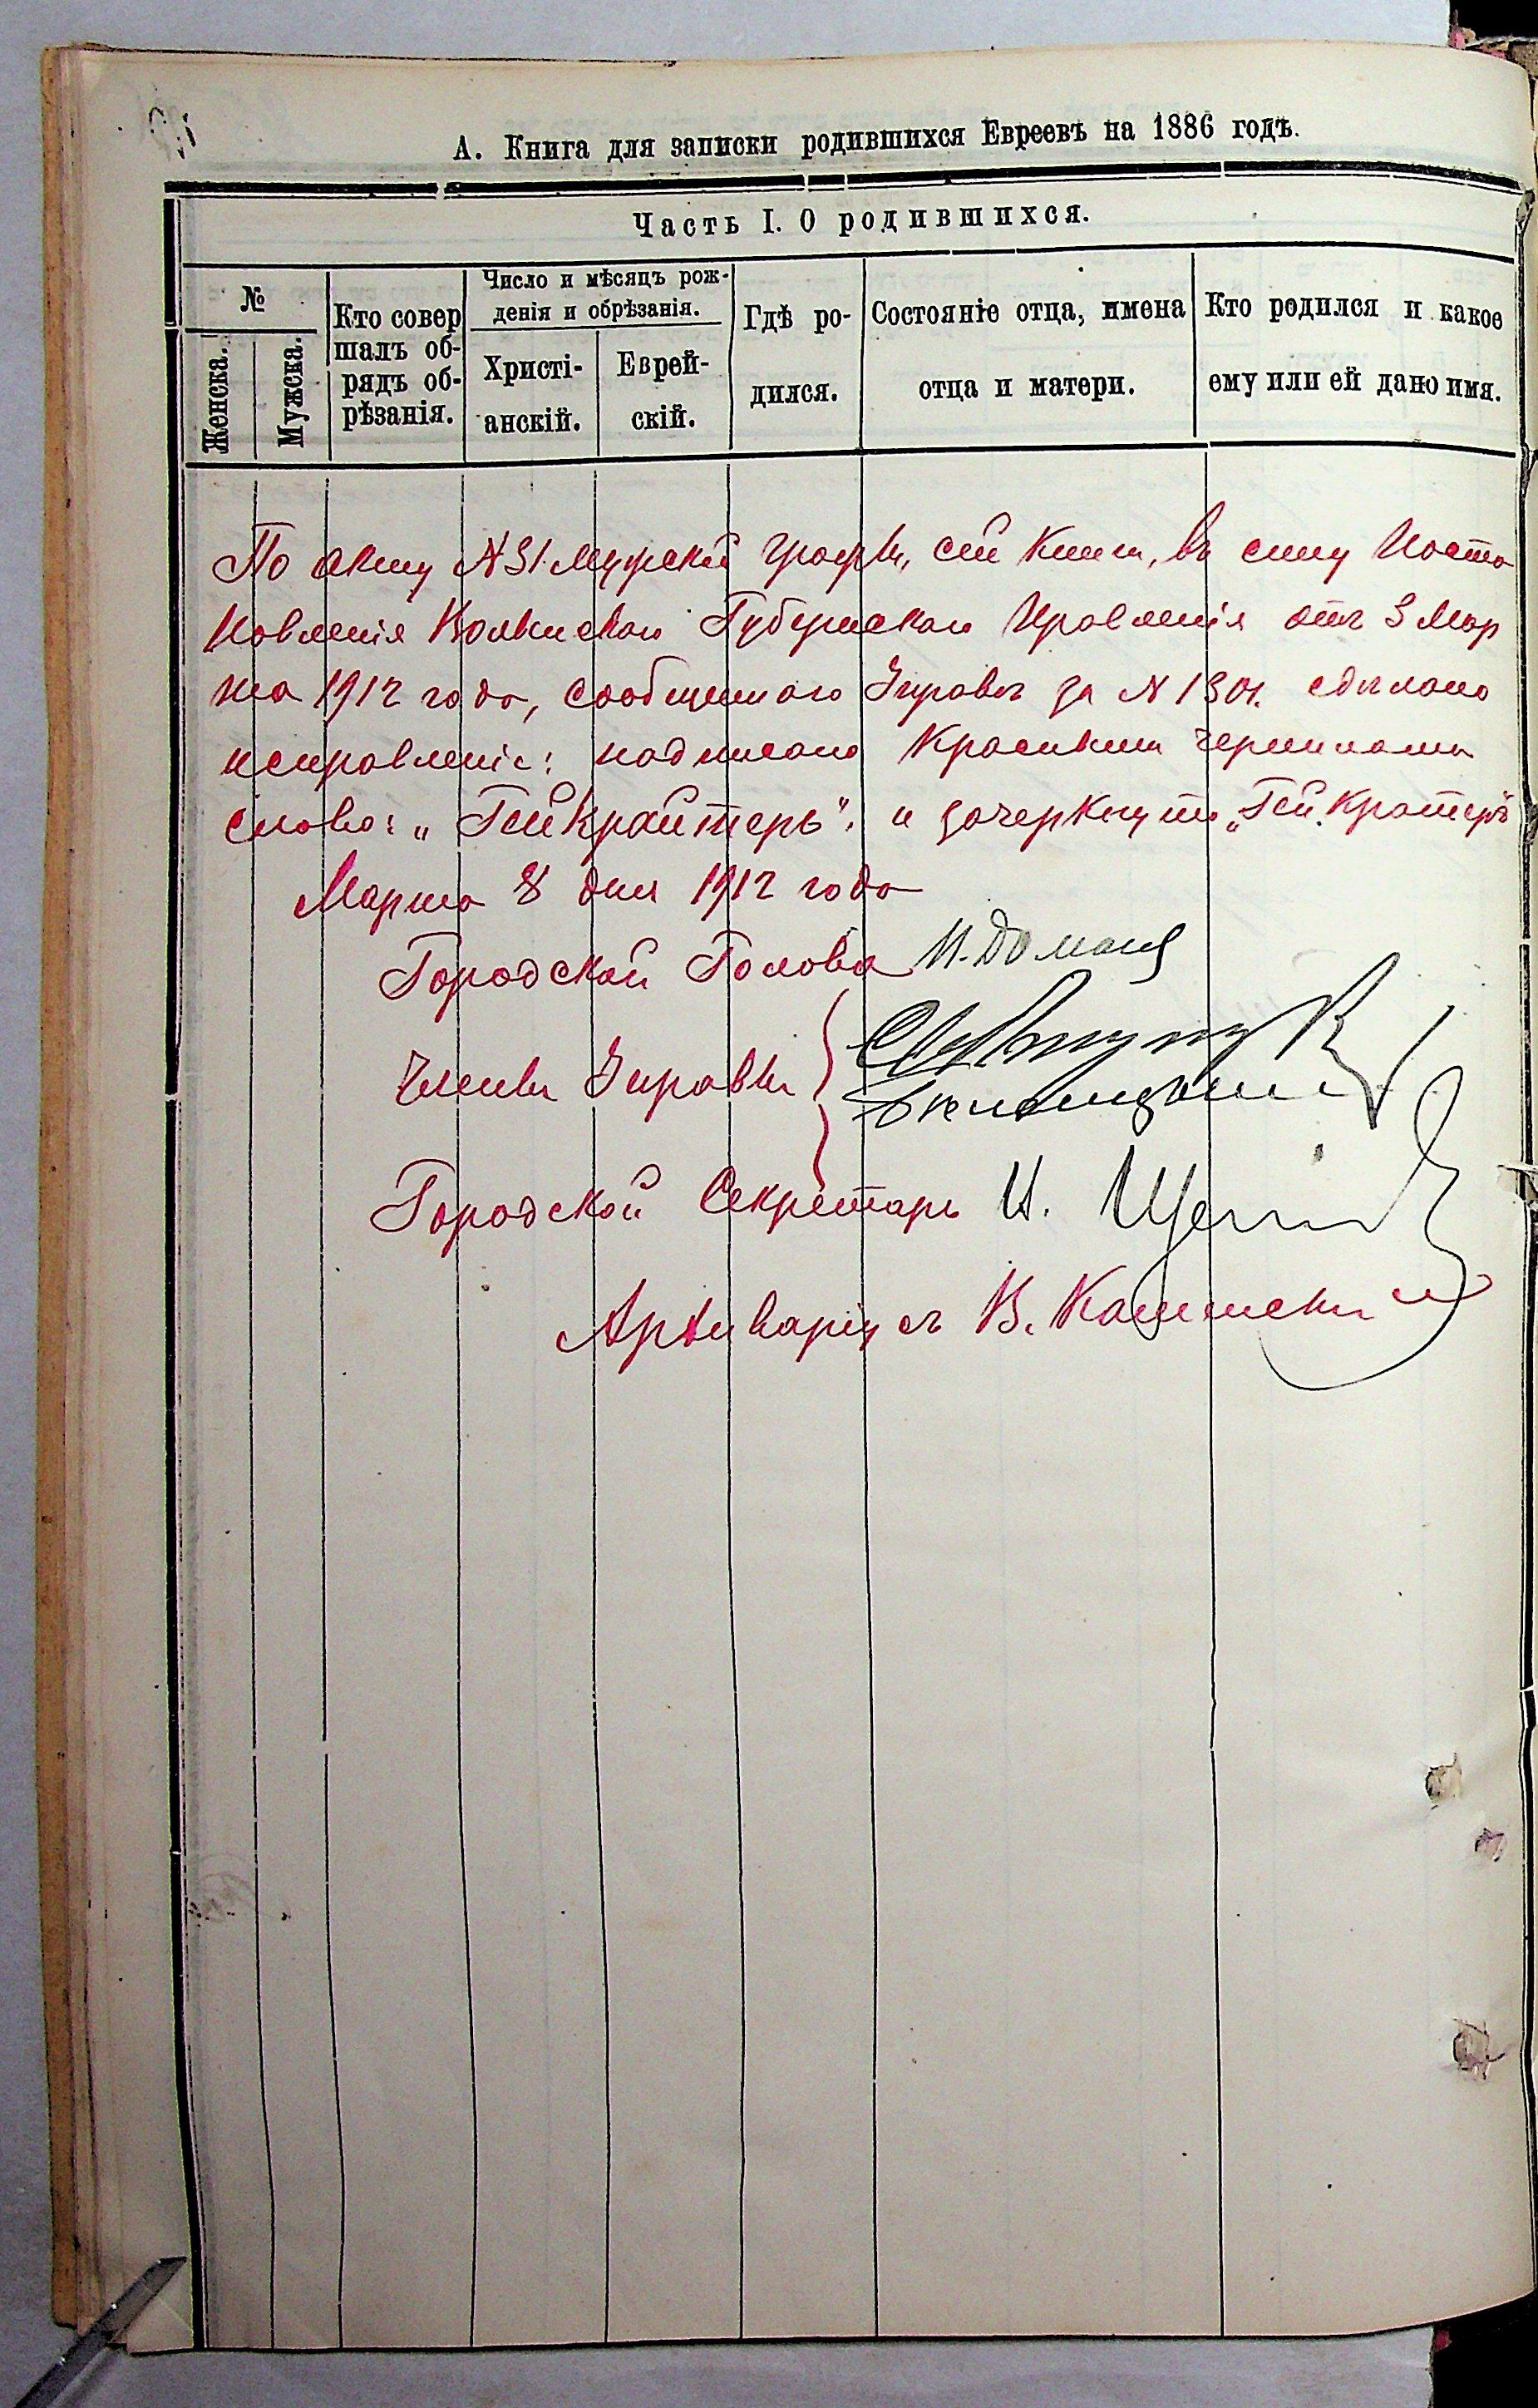 А. Книга для записки родившихся Евреевъ на 1886 годъ.
Часть I. О родившихся.
№
Женска.
Мужска.
Кто совер
шалъ об-
рядъ об-
рѣзанія.
Число и мѣсяцъ рож-
денія и обрѣзанія.
Христі-
анскій.
Еврей-
скій.
Гдѣ ро-
дился.
Состояніе отца, имена
отца и матери.
Кто родился и какое
ему или ей дано имя.
По акту № 31 мужской графы, сей книги, въ силу Поста
новленія Волынскаго Губернскаго Правленія отъ 3 Мар
та 1912 года, сообщеннаго Управѣ за № 1301. сдѣлано
исправленіе: надписано красными чернилами
слово: „Гейкрайтеръ", и зачеркнуто „Гейкратеръ"
Марта 8 дня 1912 года
Городской Голова
Члены Управы
Городской Секретарь И.
Архиваріусъ В. Каминскій